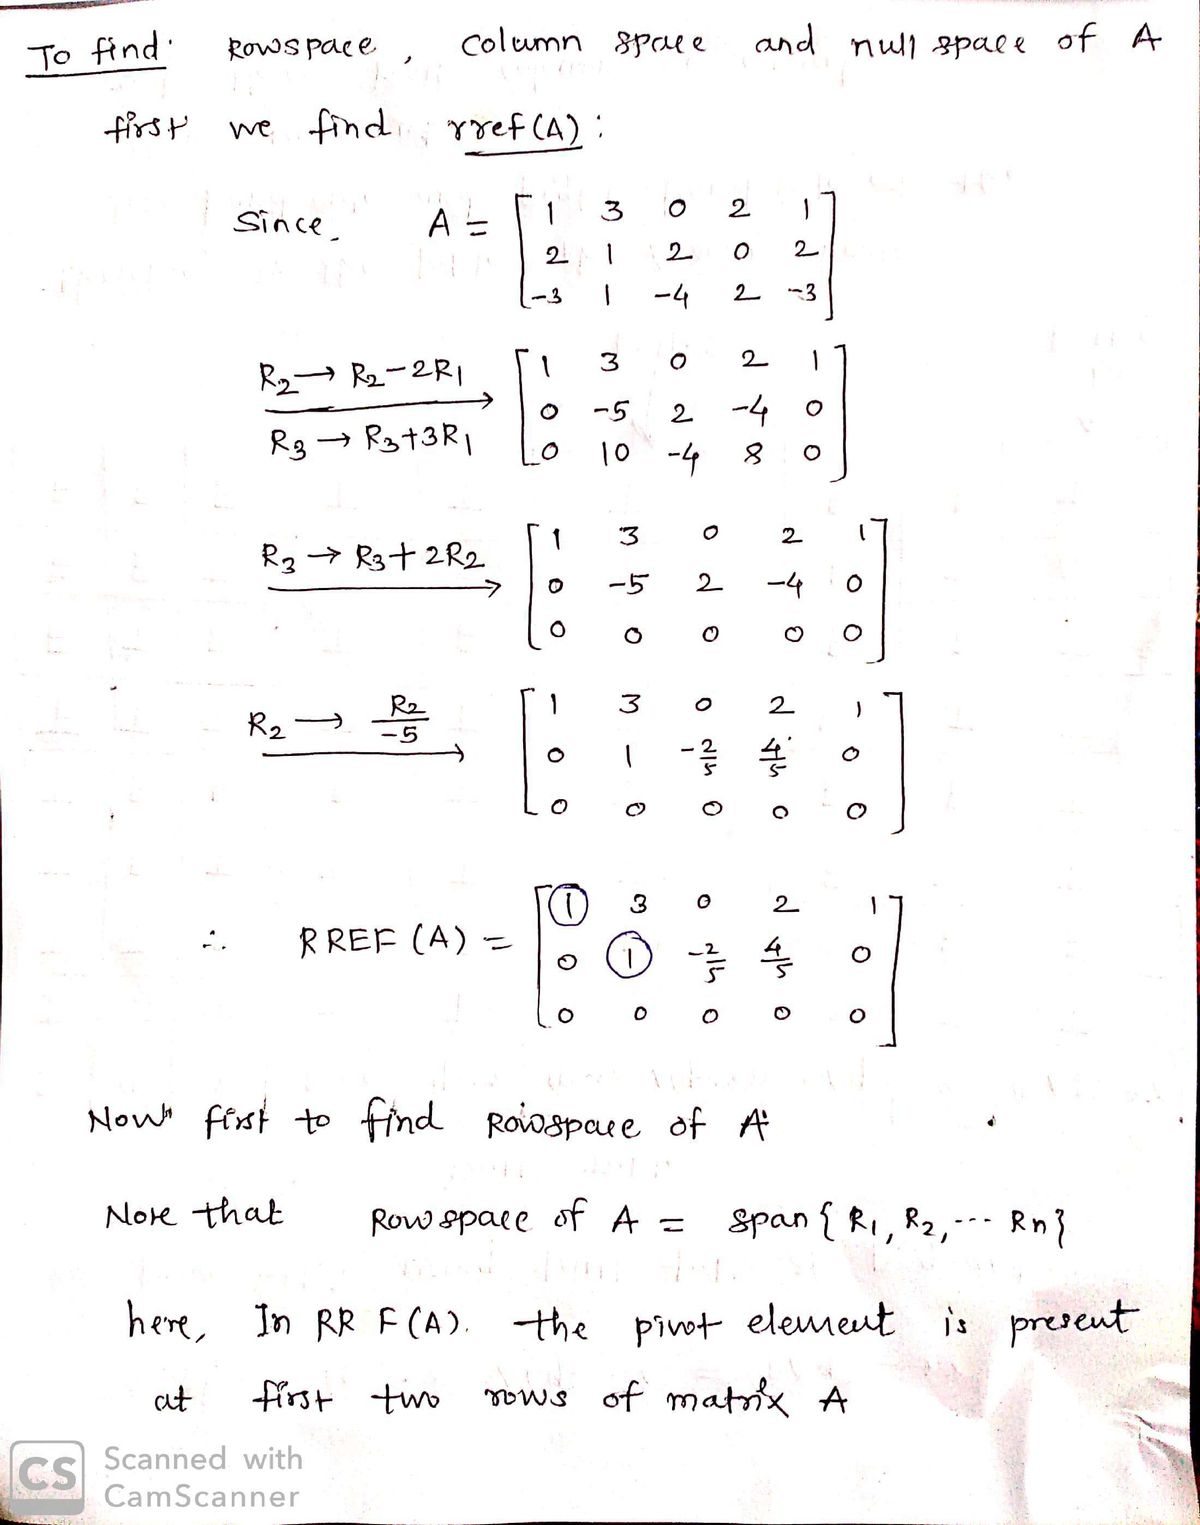 To find: Rowspace, column space and null space of A
first we find rref(A) :
Since A = [1 3 0 2 1
2 1 2 0 2
-3 1 -4 2 -3]
R2 → R2-2R1
R3 → R3+3R1
[1 3 0 2 1
0 -5 2 -4 0
0 10 -4 8 0]
R3 → R3+2R2
[1 3 0 2 1
0 -5 2 -4 0
0 0 0 0 0]
R2 → R2/-5
[1 3 0 2 1
0 1 -2/5 4/5 0
0 0 0 0 0]
∴ RREF (A) = [1 3 0 2 1
0 1 -2/5 4/5 0
0 0 0 0 0]
Now first to find Rowspace of A
Note that Rowspace of A = span{R1, R2, --- Rn}
here, In RR F(A). the pivot element is present
at first two rows of matrix A
CS Scanned with
CamScanner